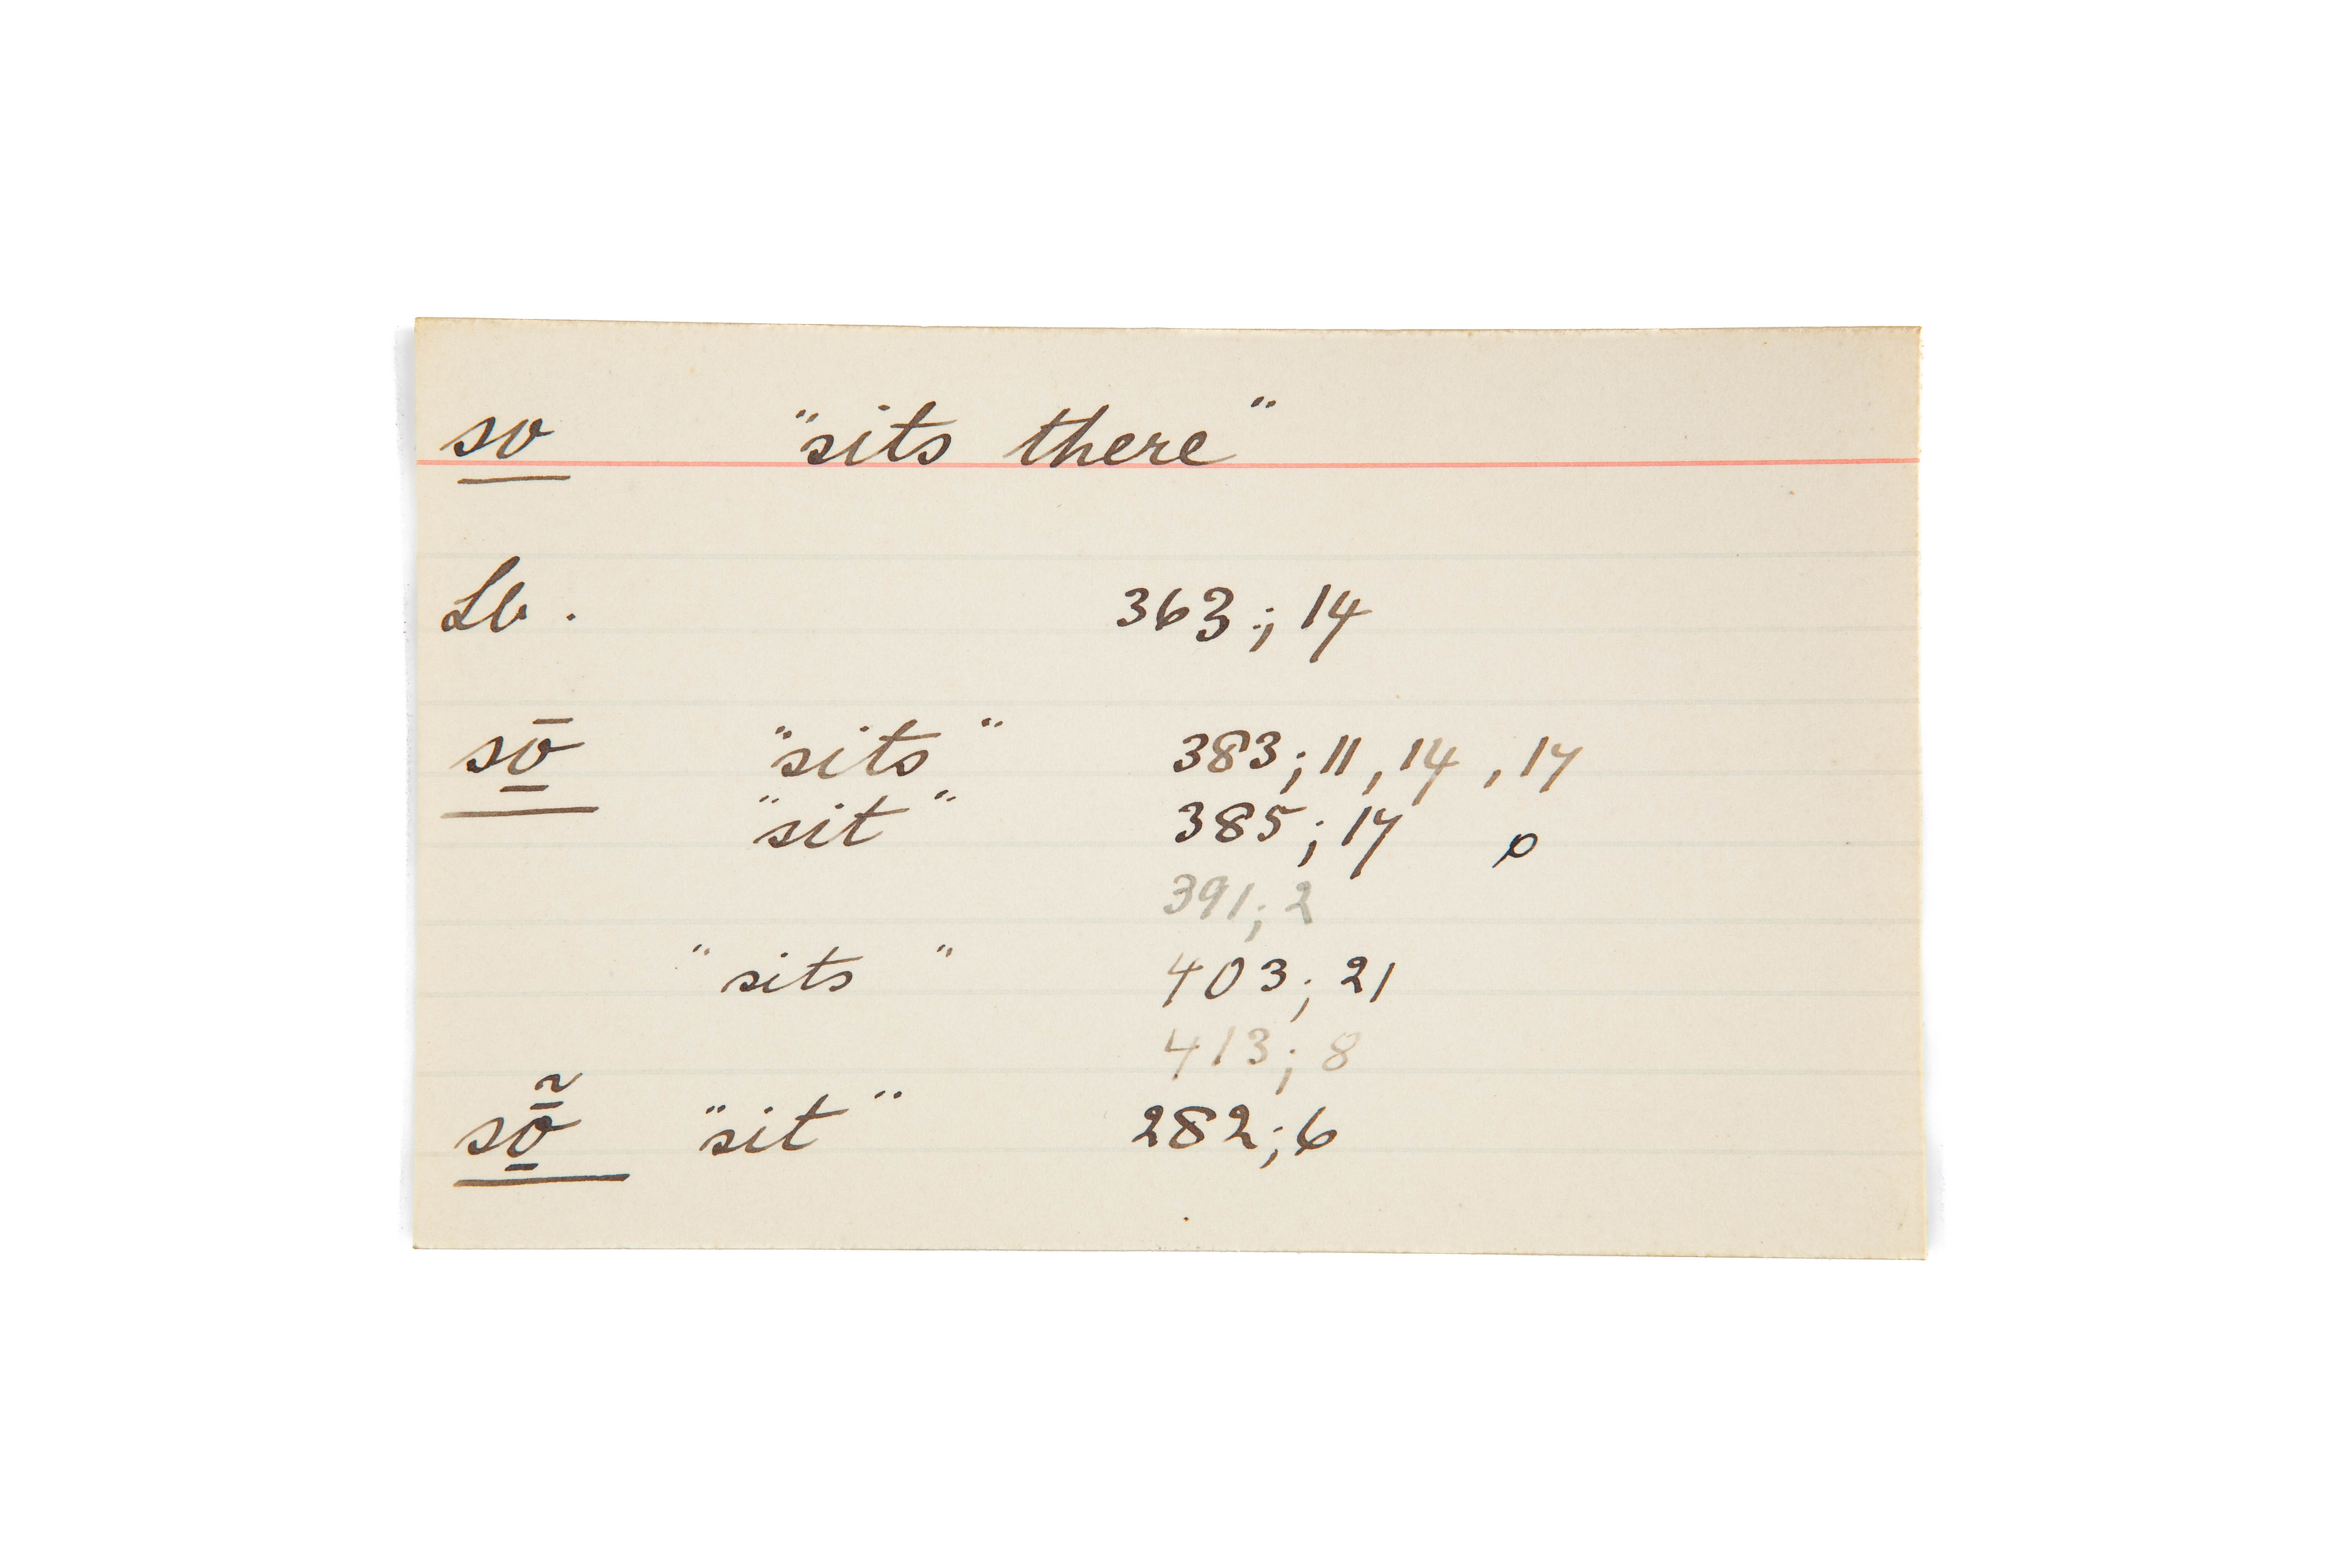 so "sits there"
Lb. 363; 14
sō̱ "sits" 383; 11, 14, 17
"sit" 385; 17
391; 2
"sits" 403; 21
413; 8
sō̱̃ "sit" 282; 6